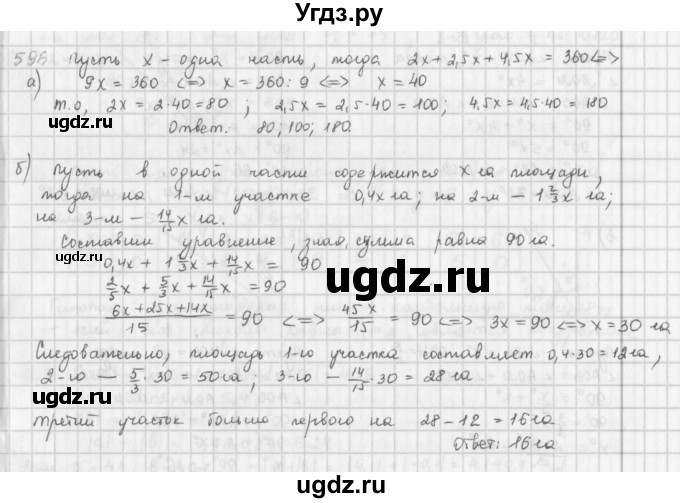 Угдз.ру
596. Пусть x – одна часть, тогда 2x + 2,5x + 4,5x = 360 <=>
а) 9x = 360 <=> x = 360 : 9 <=> x = 40
т.о, 2x = 2·40 = 80 ; 2,5x = 2,5·40 = 100; 4,5x = 4,5·40 = 180
ugdz.ru Ответ. 80; 100; 180. ugdz.ru
б) Пусть в одной части содержится x га площади,
тогда на 1-м участке 0,4x га; на 2-м – 1 2/3 x га;
на 3-м – 14/15 x га.
Составим уравнение, зная, сумма равна 90 га.
0,4x + 1 2/3 x + 14/15 x = 90
ugdz.ru
2/5 x + 5/3 x + 14/15 x = 90
(6x + 25x + 14x)/15 = 90 <=> 45x/15 = 90 <=> 3x = 90 <=> x = 30 га
ugdz.ru ugdz.ru
Следовательно, площадь 1-го участка составляет 0,4·30 = 12 га,
2-го — 5/3 · 30 = 50 га; 3-го – 14/15 · 30 = 28 га.
Третий участок больше первого на 28 – 12 = 16 га
Ответ: 16 га
ugdz.ru